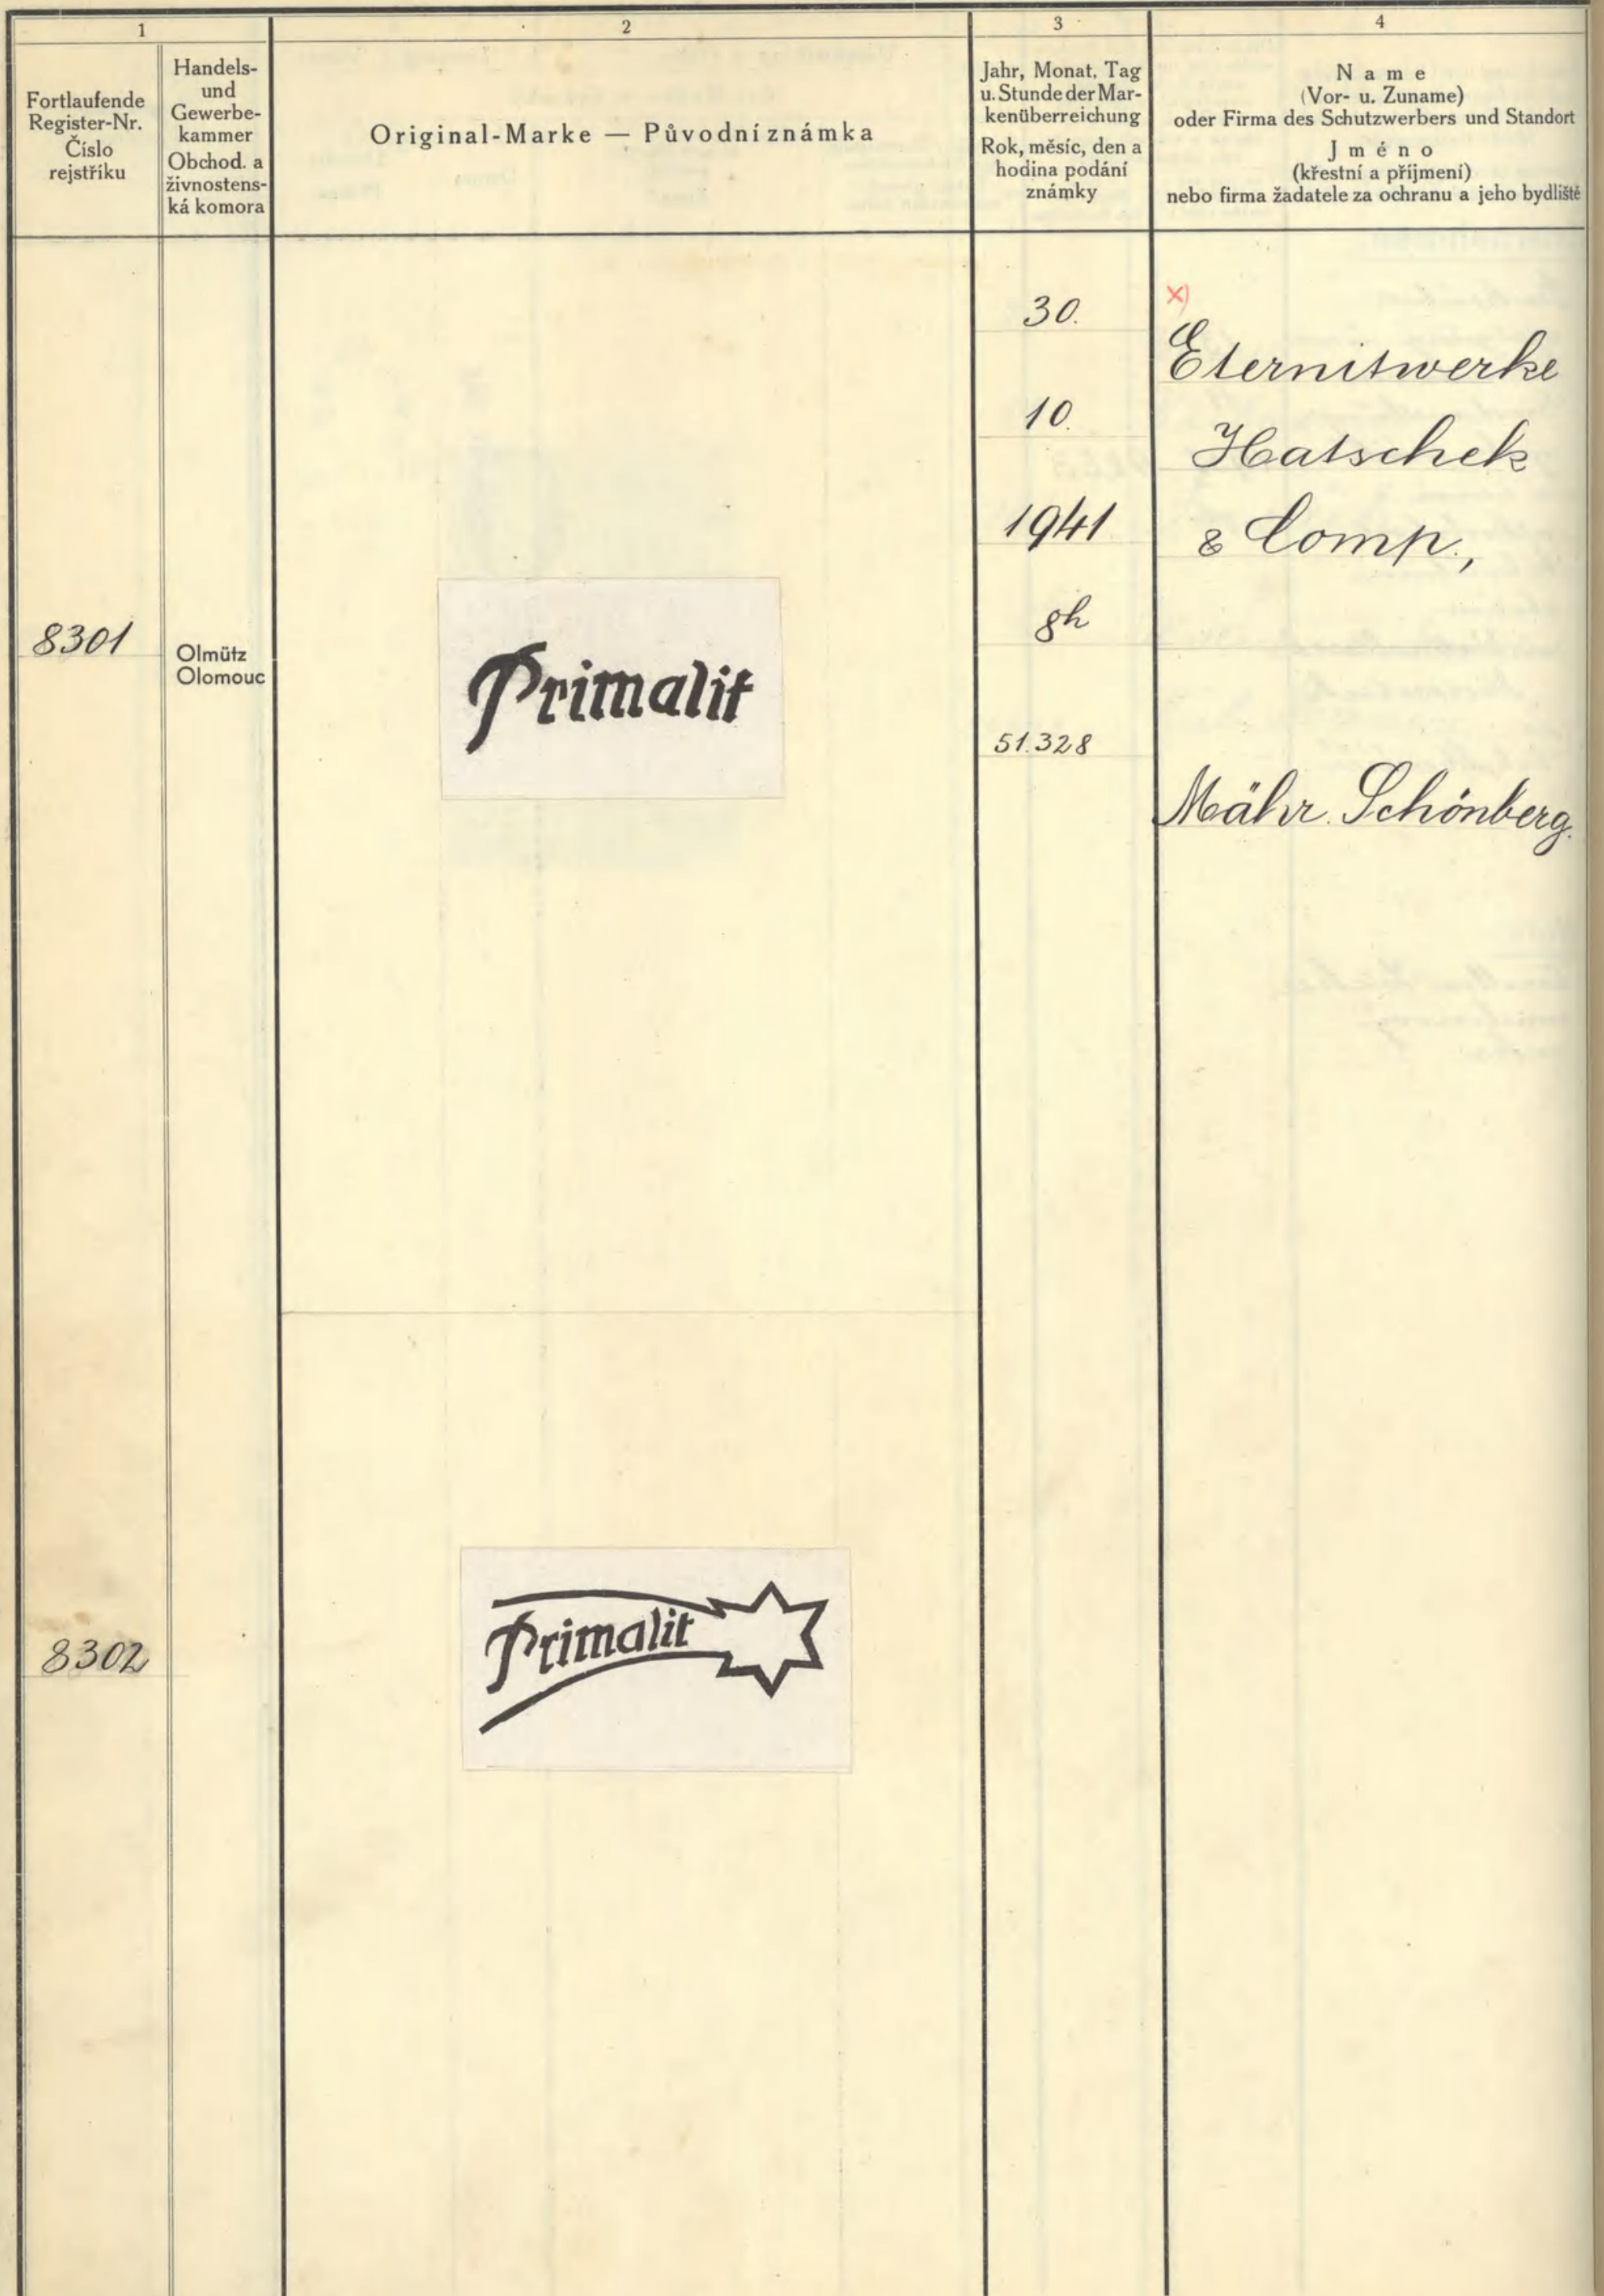 1
2
3
4
Fortlaufende
Register-Nr.
Číslo
rejstříku
Handels-
und
Gewerbe-
kammer
Obchod. a
živnostens-
ká komora
Original-Marke — Původní známka
Jahr, Monat, Tag
u. Stunde der Mar-
kenüberreichung
Rok, měsíc, den a
hodina podání
známky
Name
(Vor- u. Zuname)
oder Firma des Schutzwerbers und Standort
Jméno
(křestní a příjmení)
nebo firma žadatele za ochranu a jeho bydliště
8301
Olmütz
Olomouc
Primalit
30.
10.
1941
8h
51.328
x)
Eternitwerke
Hatschek
& Comp.,
Mähr. Schönberg.
8302
Primalit